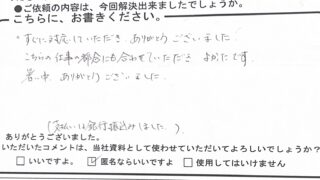 ●ご依頼の内容は、今回解決出来ましたでしょうか。
こちらに、お書きください。
すぐに対応していただき ありがとうございました。
こちらの仕事の都合にも合わせていただき よかたです
暑い中、ありがとうございました。
(支払いは銀行振込みしました。)
ありがとうございました。
いただいたコメントは、当社資料として使わせていただいてよろしいでしょうか?
□いいですよ。 ☑匿名ならいいですよ □使用してはいけません